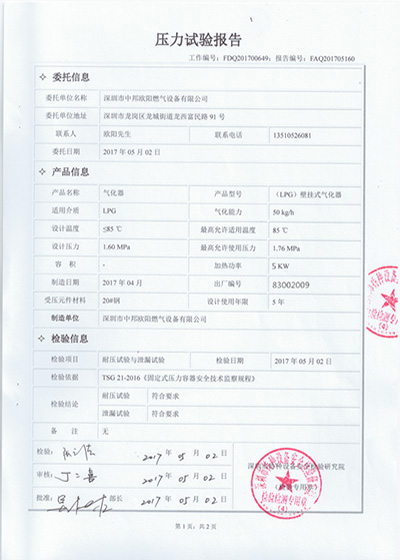 压力试验报告
工作编号：FDQ201700649；报告编号：FAQ201705160
委托信息
委托单位名称 深圳市中邦欧阳燃气设备有限公司
委托单位地址 深圳市龙岗区龙城街道龙西富民路 91 号
联系人 欧阳先生 联系电话 13510526081
委托日期 2017 年 05 月 02 日
产品信息
产品名称 气化器 产品型号 （LPG）壁挂式气化器
适用介质 LPG 气化能力 50 kg/h
设计温度 ≤85 ℃ 最高允许适用温度 85 ℃
设计压力 1.60 MPa 最高允许使用压力 1.76 MPa
容 积 - 加热功率 5 KW
制造日期 2017 年 04 月 出厂编号 83002009
受压元件材料 20#钢 设计使用年限 5 年
制造单位 深圳市中邦欧阳燃气设备有限公司
检验信息
检验项目 耐压试验与泄漏试验 检验日期 2017 年 05 月 02 日
检验依据 TSG 21-2016《固定式压力容器安全技术监察规程》
检验结论 耐压试验 符合要求
泄漏试验 符合要求
备 注 无
检验： 2017 年 05 月 02 日
审核： 2017 年 05 月 02 日
批准： 部长 2017 年 05 月 02 日
深圳市特种设备安全检验研究院
检验检测专用章
(4)
第 1 页；共 2 页